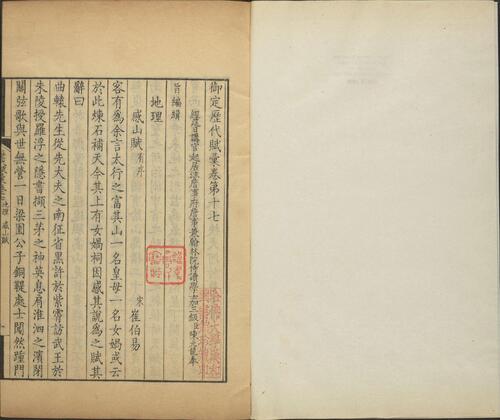 御定歷代賦彙卷第十七
經筵日講官起居注詹事府詹事兼翰林院侍讀學士加三級臣陳元龍奉
旨編輯
地理
感山賦 有序
宋 崔伯易
客有爲余言太行之富其山一名皇母一名女媧或云
於此煉石補天今其上有女媧祠因感其說爲之賦其
辭曰
曲轅先生從先大夫之南征省黑許於紫霄訪武王於
朱陵授羅浮之隱書擷三茅之神英息肩淮泗之濱閉
關弦歌與世無營一日梁園公子銅鞮處士闖然踵門